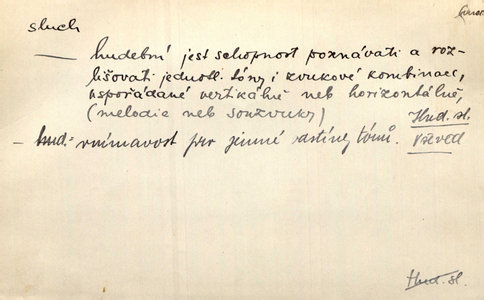 sluch
— hudební jest schopnost poznávati a roz-
lišovati jednotl. tóny i zvukové kombinace,
uspořádané vertikálně neb horizontálně,
(melodie neb souzvuky) Hud. sl.
— hud. = vnímavost pro jemné odstíny tónů. Vševed
Hud. sl.